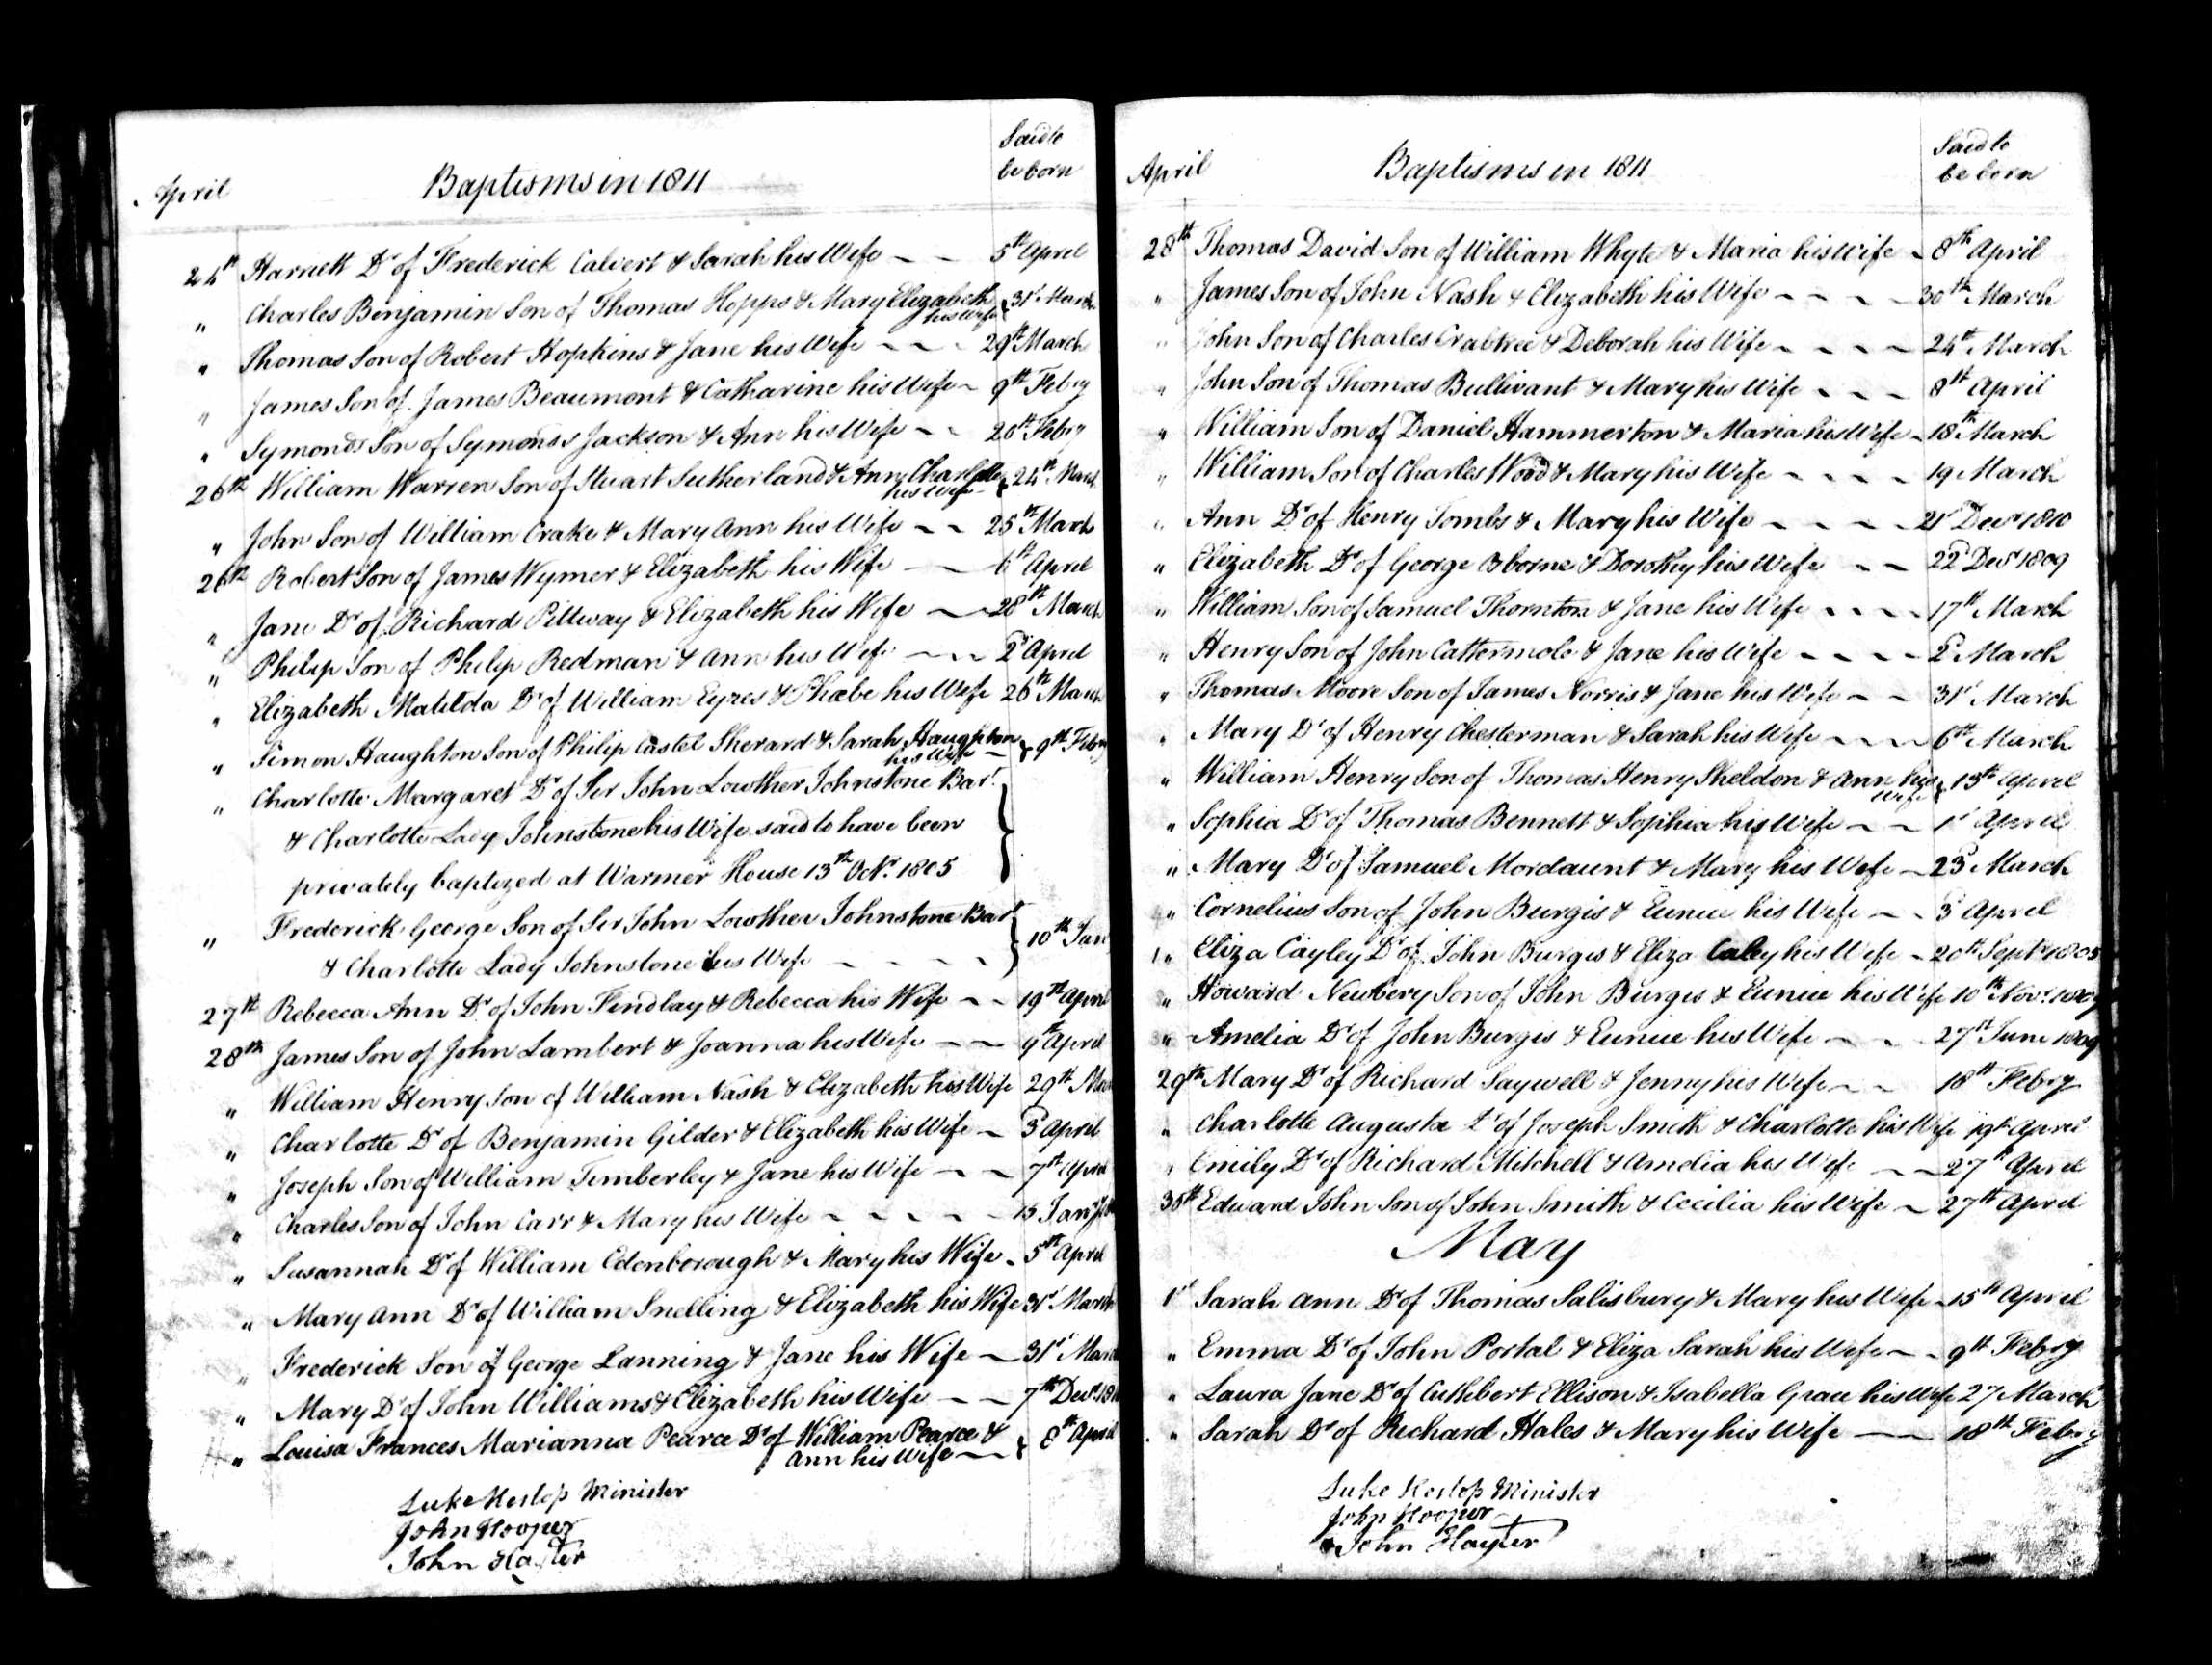 April Baptisms in 1811 Said to
be born
24th Harriett Dr of Frederick Calvert & Sarah his Wife 5th April
" Charles Benjamin Son of Thomas Hopps & Mary Elizabeth 31st March
his Wife
" Thomas Son of Robert Hopkins & Jane his Wife 29th March
" James Son of James Beaumont & Catharine his Wife 9th Febry
" Symonds Son of Symonds Jackson & Ann his Wife 20th Febry
26th William Warren Son of Stuart Sutherland & Ann Charlotte 24th March
his Wife
" John Son of William Crake & Mary Ann his Wife 25th March
26th Robert Son of James Wymer & Elizabeth his Wife 6th April
" Jane Dr of Richard Pittway & Elizabeth his Wife 28th March
" Philip Son of Philip Redman & Ann his Wife 2d April
" Elizabeth Matilda Dr of William Eyres & Phœbe his Wife 26th March
" Simon Haughton Son of Philip Castel Sherard & Sarah Haughton 9th Febry
his Wife
" Charlotte Margaret Dr of Sir John Lowther Johnstone Bart.
& Charlotte Lady Johnstone his Wife said to have been
privately baptized at Warmer House 13th Octr. 1805
" Frederick George Son of Sir John Lowther Johnstone Bart 10th
& Charlotte Lady Johnstone his Wife
27th Rebecca Ann Dr of John Findlay & Rebecca his Wife 19th April
28th James Son of John Lambert & Joanna his Wife 9th April
" William Henry Son of William Nash & Elizabeth his Wife 29th
" Charlotte Dr of Benjamin Gilder & Elizabeth his Wife 3d April
" Joseph Son of William Timberley & Jane his Wife 7th April
" Charles Son of John Carr & Mary his Wife 15
" Susannah Dr of William Edenborough & Mary his Wife 5th April
" Mary Ann Dr of William Snelling & Elizabeth his Wife 31st March
" Frederick Son of George Lanning & Jane his Wife 31st March
" Mary Dr of John Williams & Elizabeth his Wife 7th Decr
" Louisa Frances Marianna Pearce Dr of William Pearce & 8th April
Ann his Wife
Luke Heslop Minister
John Hooper
John Hayter
April Baptisms in 1811 Said to
be born
28th Thomas David Son of William Whyte & Maria his Wife 8th April
" James Son of John Nash & Elizabeth his Wife 30th March
" John Son of Charles Crabtree & Deborah his Wife 24th March
" John Son of Thomas Bullivant & Mary his Wife 8th April
" William Son of Daniel Hammerton & Maria his Wife 18th March
" William Son of Charles Wood & Mary his Wife 19 March
" Ann Dr of Henry Tombs & Mary his Wife 21st Decr 1810
" Elizabeth Dr of George Osborne & Dorothy his Wife 22d Decr 1809
" William Son of Samuel Thornton & Jane his Wife 17th March
" Henry Son of John Cattermole & Jane his Wife 2d March
" Thomas Moore Son of James Norris & Jane his Wife 31st March
" Mary Dr of Henry Chesterman & Sarah his Wife 6th March
" William Henry Son of Thomas Henry Sheldon & Ann his 13th April
Wife
" Sophia Dr of Thomas Bennett & Sophia his Wife 1st April
" Mary Dr of Samuel Mordaunt & Mary his Wife 23d March
" Cornelius Son of John Burgis & Eunice his Wife 3d April
" Eliza Cayley Dr of John Burgis & Eliza Caley his Wife 20th Septr 1805
" Howard Newbery Son of John Burgis & Eunice his Wife 10th Novr.
" Amelia Dr of John Burgis & Eunice his Wife 27th June 1809
29th Mary Dr of Richard Saywell & Jenny his Wife 18th Febry
" Charlotte Augusta Dr of Joseph Smith & Charlotte his Wife 19th April
" Emily Dr of Richard Mitchell & Amelia his Wife 27th April
30th Edward John Son of John Smith & Cecilia his Wife 27th April
May
1st Sarah Ann Dr of Thomas Salisbury & Mary his Wife 15th April
" Emma Dr of John Portal & Eliza Sarah his Wife 9th Febry
" Laura Jane Dr of Cuthbert Ellison & Isabella Grace his Wife 27 March
" Sarah Dr of Richard Hales & Mary his Wife 18th Febry
Luke Heslop Minister
John Hooper
John Hayter